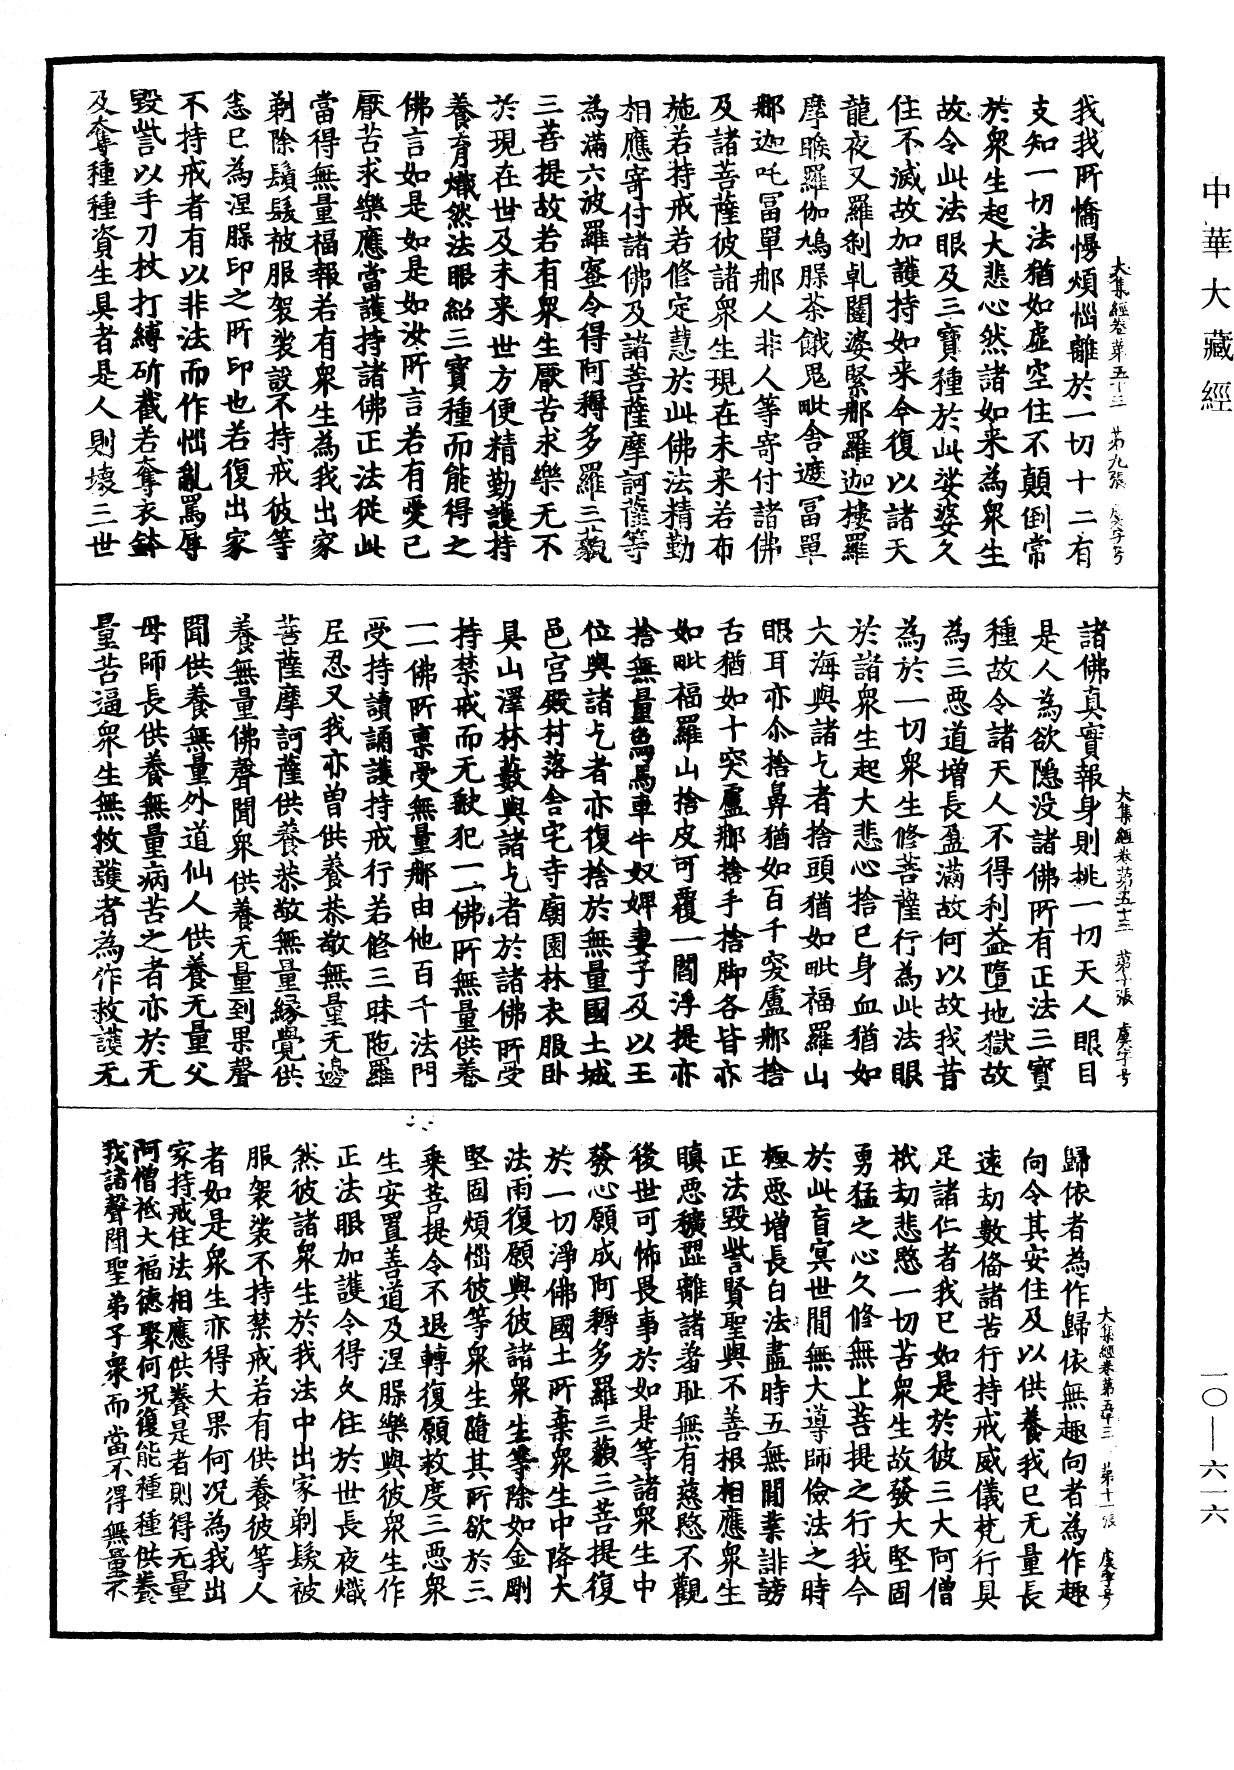 中華大藏經
大集經卷第五十三 第九張 虞字号
我我所憍慢煩惱離於一切十二有
支知一切法猶如虚空住不顛倒常
於衆生起大悲心然諸如来為衆生
故令此法眼及三寶種於此娑婆久
住不滅故加護持如来今復以諸天
龍夜叉羅刹乹闥婆緊那羅迦樓羅
摩睺羅伽鳩脲茶餓鬼毗舎遮冨單
那迦吒冨單那人非人等寄付諸佛
及諸菩薩彼諸衆生現在未来若布
施若持戒若修定慧於此佛法精勤
相應寄付諸佛及諸菩薩摩訶薩等
為滿六波羅蜜令得阿耨多羅三藐
三菩提故若有衆生厭苦求樂无不
於現在世及未来世方便精勤護持
養育熾然法眼紹三寶種而能得之
佛言如是如是如汝所言若有愛己
厭苦求樂應當護持諸佛正法從此
當得無量福報若有衆生為我出家
剃除鬚髮被服袈裟設不持戒彼等
悉已為涅脲印之所印也若復出家
不持戒者有以非法而作惱亂罵辱
毀訾以手刀杖打縛斫截若奪衣鉢
及奪種種資生具者是人則壞三世
大集經卷第五十三 第十張 虞字号
諸佛真實報身則挑一切天人眼目
是人為欲隐没諸佛所有正法三寶
種故令諸天人不得利益墮地獄故
為三惡道增長盈滿故何以故我昔
為於一切衆生修菩薩行為此法眼
於諸衆生起大悲心捨己身血猶如
大海與諸乞者捨頭猶如毗福羅山
眼耳亦尒捨鼻猶如百千突盧那捨
舌猶如十突盧那捨手捨脚各皆亦
如毗福羅山捨皮可覆一閻浮提亦
捨無量象馬車牛奴婢妻子及以王
位與諸乞者亦復捨於無量國土城
邑宫殿村落舎宅寺廟園林衣服卧
具山澤林藪與諸乞者於諸佛所受
持禁戒而无缺犯一一佛所無量供養
一一佛所禀受無量那由他百千法門
受持讀誦護持戒行若修三昧陁羅
尼忍又我亦曽供養恭敬無量无邊
菩薩摩訶薩供養恭敬無量縁覺供
養無量佛聲聞衆供養无量到果聲
聞供養無量外道仙人供養无量父
母師長供養無量病苦之者亦於无
量苦逼衆生無救護者為作救護无
大集經卷第五十三 第十一張 虞字号
歸依者為作歸依無趣向者為作趣
向令其安住及以供養我已无量長
逺劫數俻諸苦行持戒威儀梵行具
足諸仁者我已如是於彼三大阿僧
祇劫悲愍一切苦衆生故發大堅固
勇猛之心久修無上菩提之行我今
於此盲冥世間無大導師儉法之時
極惡增長白法盡時五無間業誹謗
正法毀訾賢聖與不善根相應衆生
瞋惡獷澀離諸羞耻無有慈愍不觀
後世可怖畏事於如是等諸衆生中
發心願成阿耨多羅三藐三菩提復
於一切淨佛國土所棄衆生中降大
法雨復願與彼諸衆生等除如金剛
堅固煩惱彼等衆生隨其所欲於三
乗菩提令不退轉復願救度三惡衆
生安置善道及涅脲樂與彼衆生作
正法眼加護令得久住於世長夜熾
然彼諸衆生於我法中出家剃髮被
服袈裟不持禁戒若有供養彼等人
者如是衆生亦得大果何况為我出
家持戒住法相應供養是者則得无量
阿僧祗大福德聚何况復能種種供養
我諸聲聞聖弟子衆而當不得無量不
一〇—六一六